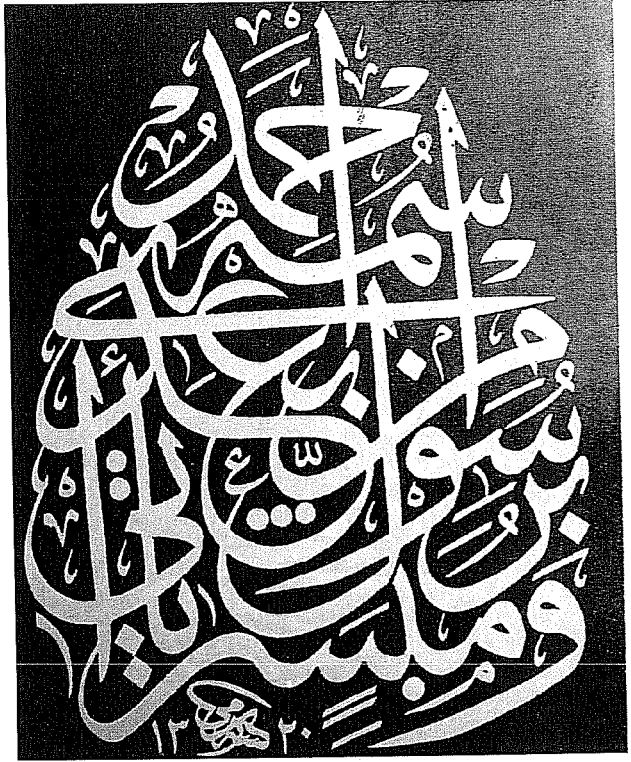 وَمُبَشِّرًا بِرَسُولٍ يَأْتِي مِنْ بَعْدِي اسْمُهُ أَحْمَدُ
١٣٢٠